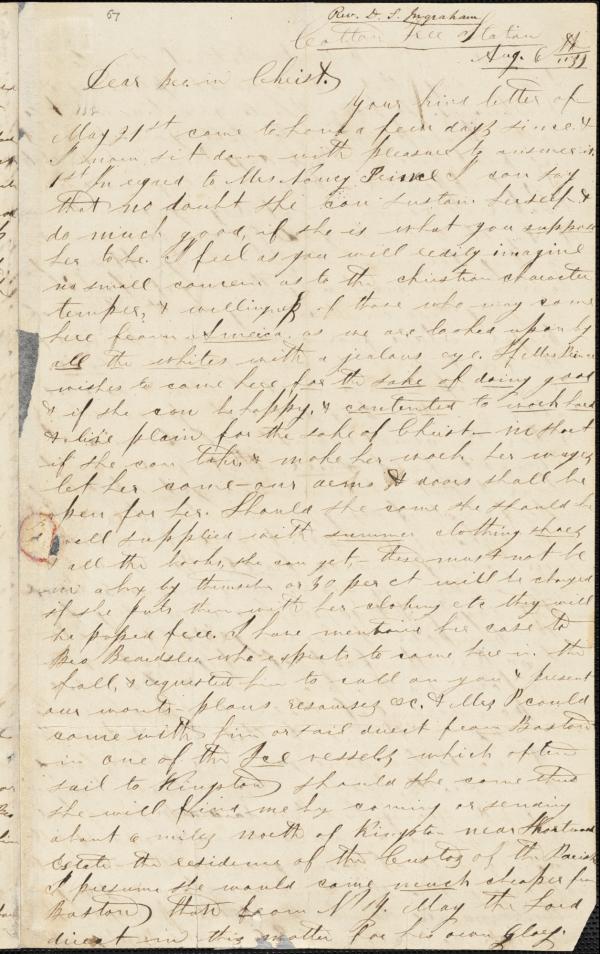 67
Rev. D. S. Ingraham
Cotton Tree Station
Aug. 6
Dear bro. in Christ.
Your kind letter of
May 21st came to hand a few days since &
I now sit down with pleasure to answer it.
1st In regard to Mrs Nancy Prince I can say
that no doubt she can sustain herself &
do much good, if she is what you suppose
her to be. I feel as you will easily imagine
no small concern as to the christian character
temper, & willingness of those who may come
here from America as we are looked upon by
all the whites with a jealous eye. If Mrs Prince
wishes to come here for the sake of doing good
& if she can be happy, & contented to work hard
& live plain for the sake of Christ - in short
if she can take & make her work her wages
let her come - our arms & doors shall be
open for her. Should she come she should be
well supplied with summer clothing shoes
& all the books, she can get, - these must not be
in a box by themselves or 30 per ct will be charged
if she puts them with her clothing etc they will
be passed free. I have mentioned her case to
Bro Beardslee who expects to come here in the
fall, & requested him to call on you & present
our wants plans resources &c. & Mrs P could
come with him or sail direct from Boston
in one of the Ice vessels which often
sail to Kingston should she come thus
she will find me by coming or sending
about 6 miles north of Kingston near Shortwood
Estate the residence of the Custos of the Parish
I presume she would come much cheaper from
Boston than from N.Y. May the Lord
direct in this matter for his own glory.